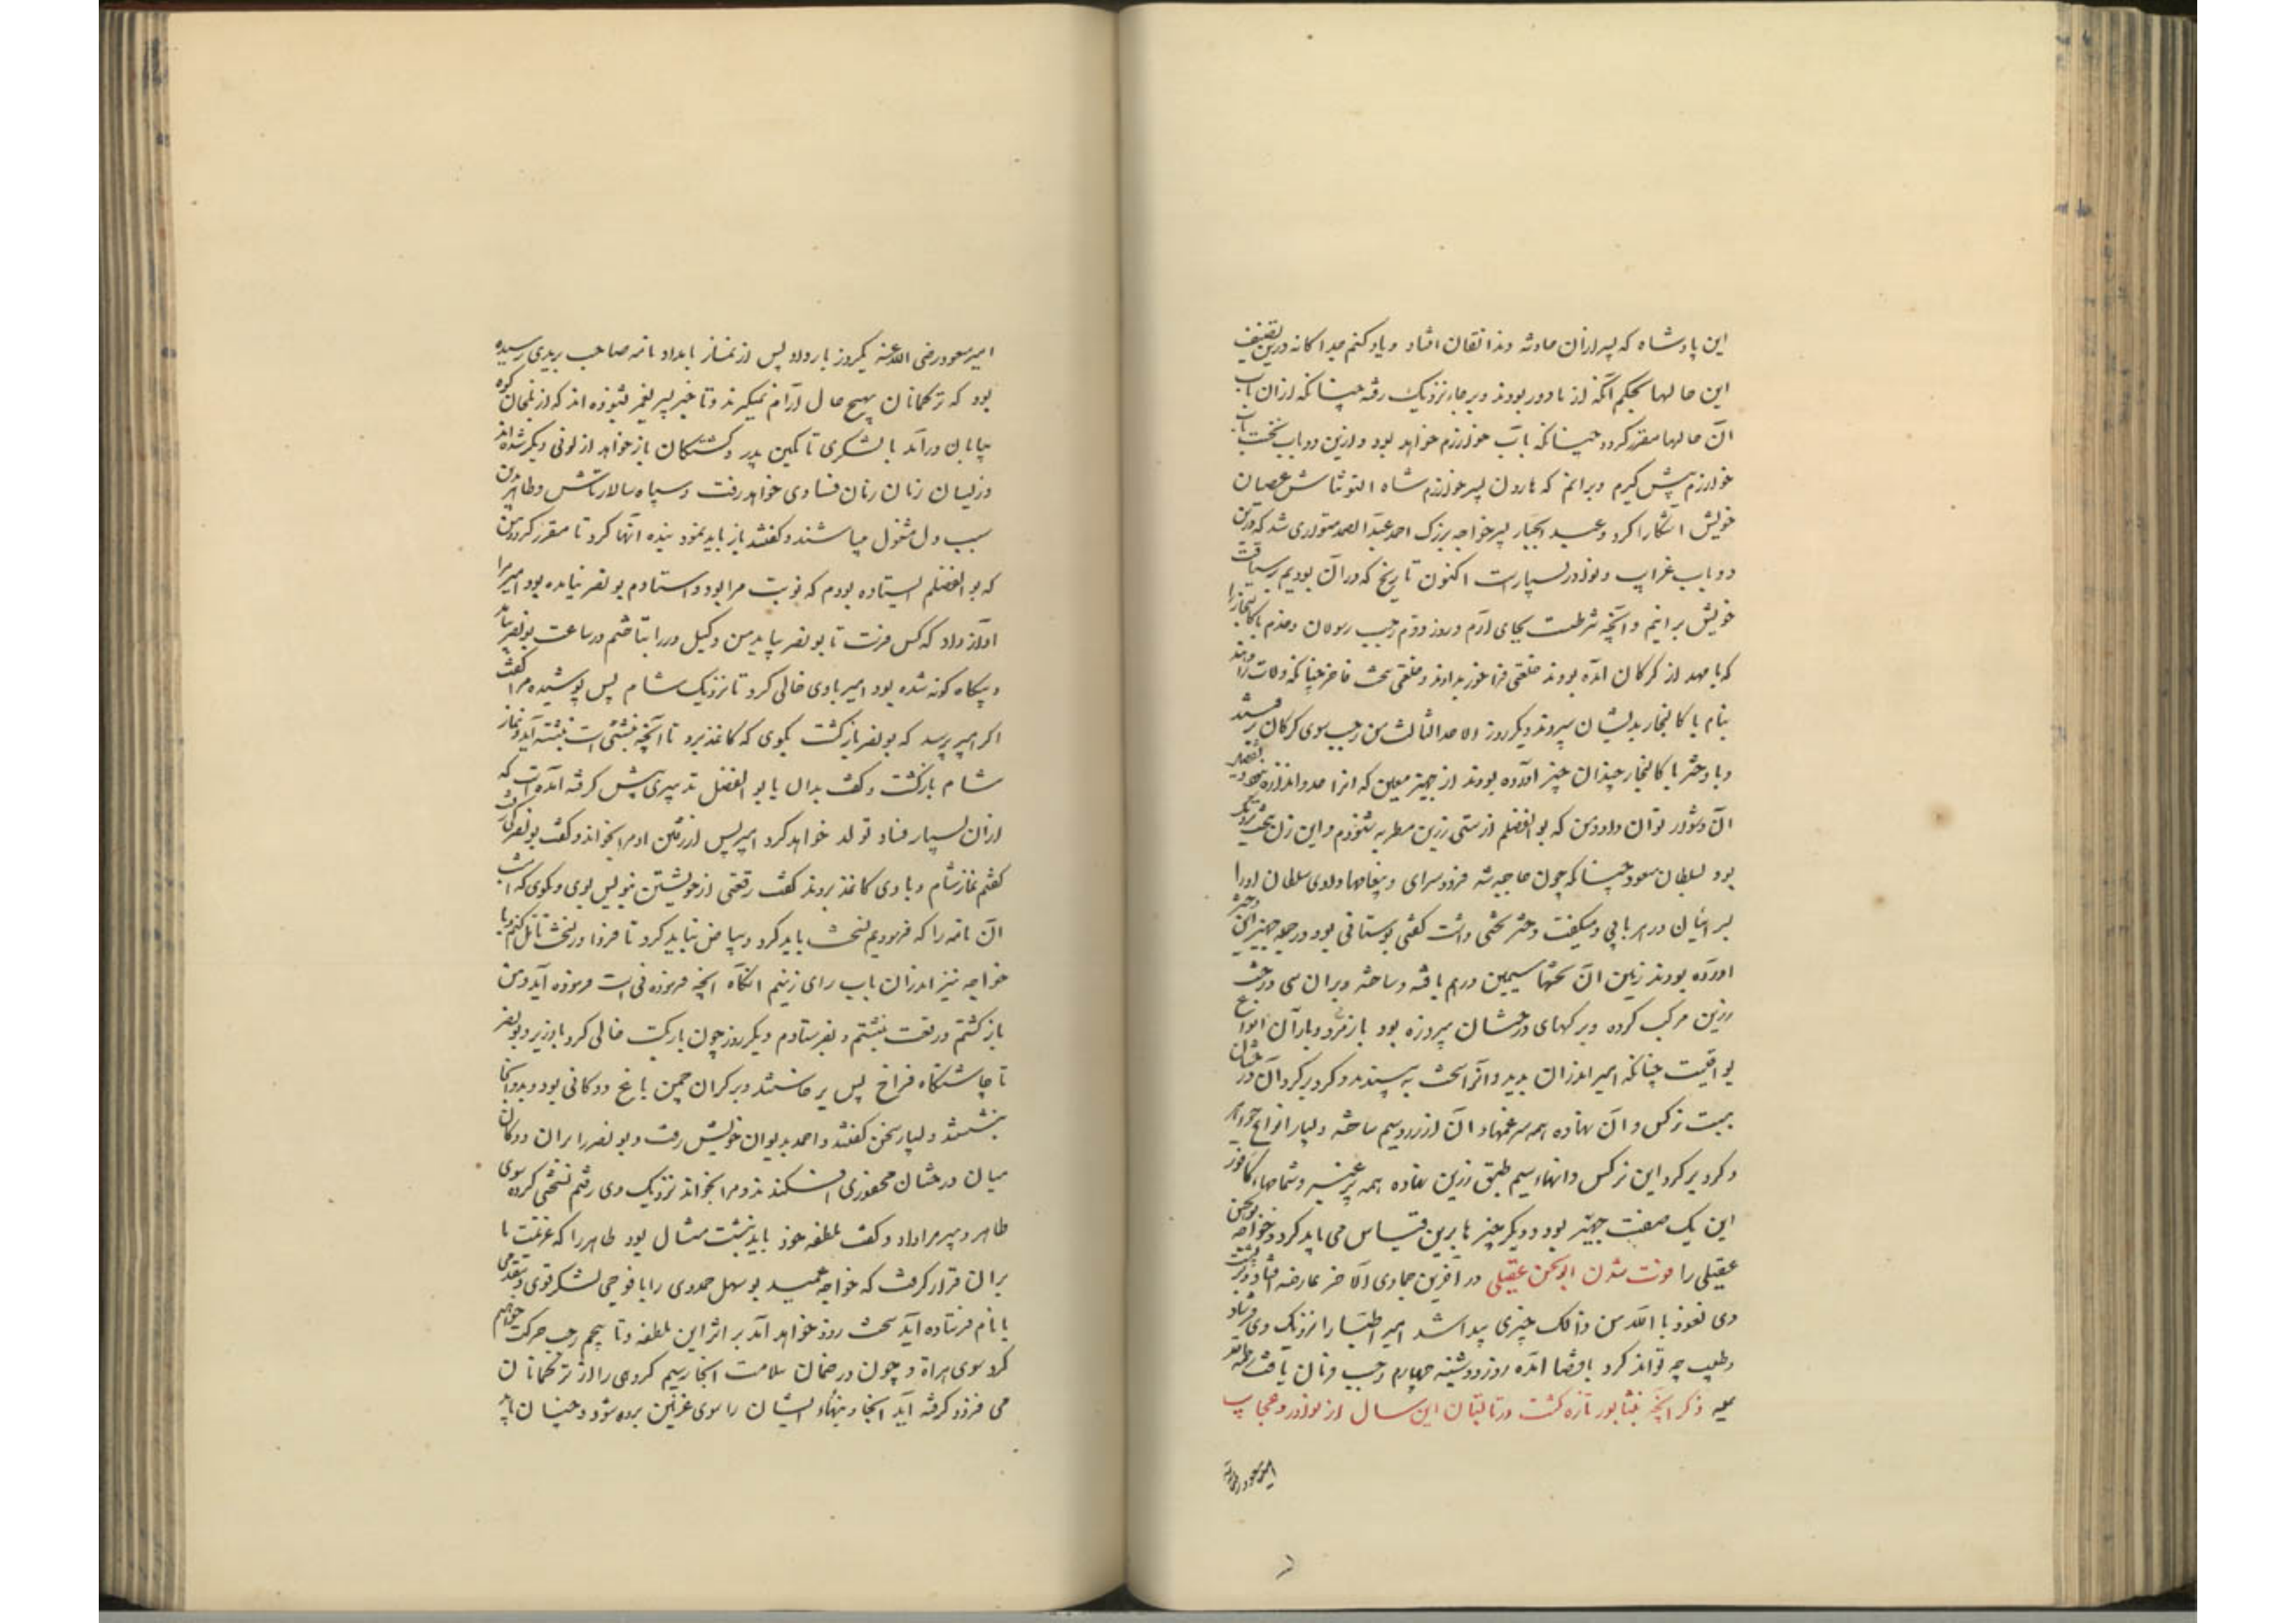 این پادشاه که پس ازان حادثه وندانقان افتاد و یاد کنم جداگانه درین تصنیف
این حالها بحکم آنکه از ما دور بودند و برجاء نزدیک رفته چنانکه ازان باب
آن حالها مقرر گردد چنانکه باب خوارزم خواهد بود و ازین دو باب نخست باب
خوارزم پیش گیرم و برانم که هارون پسر خوارزم شاه التونتاش عصیان
خویش آشکارا کرد و عبد الجبار پسر خواجه بزرگ احمد عبد الصمد متواری شد که درین
دو باب غرایب و نوادر بسیارست اکنون تاریخ که دران بودیم بر سیاقت
خویش برانیم و آنچه شرطست بجای آرم و روز دوم رجب رسولان و خدم باکالنجار را
که با مهد از گرگان آمده بودند خلعتی فراخور بدادند و خلعتی سخت فاخر چنانکه ولات را دهند
بنام باکالنجار بدیشان سپردند و دیگر روز الاحد الثالث من رجب سوی گرگان برفتند
و با دختر باکالنجار چندان چیز آورده بودند از جهیز معین که آنرا حد و اندازه نبود و تفصیل
آن دشوار توان داد و من که بو الفضلم از ستی زرین مطربه شنودم و این زن سخت نزدیک
بود بسلطان مسعود چنانکه چون حاجبه شد فرود سرای و پیغامها دادی سلطان او را
بسرائیان در هر بابی و میگفت دختر تختی داشت گفتی بوستانی بود در جمله جهیز این دختر
آورده بودند زمین آن تختها سیمین درهم بافته و ساخته و بران سی درخت
زرین مرکب کرده و برگهای درختان پیروزه بود با زمرد و بار آن انواع
یواقیت چنانکه امیر اندران بدید و آنرا سخت به پسندید و گرد بر گرد آن درختان
بیست نرگس دان نهاده همه سپر غمهاء آن از زر و سیم ساخته و بسیار انواع جواهر
و گرد بر گرد این نرگس دانهاء سیم طبق زرین نهاده همه پر عنبر و شمامهاء کافور
این یک صفت جهیز بود و دیگر چیزها برین قیاس می باید کرد و خواجه بوالحسن
عقیلی را فوت شدن ابوالحسن عقیلی در آخرین جمادی الآخر عارضه افتاد و بر پشت
وی نعوذ با الله من ذالک چیزی پیدا شد امیر اطبا را نزدیک وی فرستاد
و طبیب چه تواند کرد با قضا آمده روز دوشنبه چهارم رجب فرمان یافت رحمة الله
علیه ذکر آنچه بنشابور تازه گشت در تابستان این سال از نوادر و عجایب
امیر مسعود رضی الله
امیر مسعود رضی الله عنه یکروز بار داد پس از نماز بامداد نامه صاحب بریدی رسیده
بود که ترکمانان بهیچ حال آرام نمیگیرند و تا خبر پسر یغمر شنوده اند که از بلخان کوه
بیابان درآمد با لشکری تا کین پدر و کشتگان باز خواهد از لونی دیگر شده اند
و زیشان زنان زنان فسادی خواهد رفت و سپاه سالار تاش و طاهر بدین
سبب دل مشغول میباشند و گفتند باز باید نمود بنده انها کرد تا مقرر گردد من
که بو الفضلم ایستاده بودم که نوبت مرا بود و استادم بو نصر نیامده بود امیر مرا
آواز داد که کس فرست تا بو نصر بیاید من وکیل در را بتاختم در ساعت بونصر بیامد
و بیگاه گونه شده بود امیر با وی خالی کرد تا نزدیک شام پس پوشیده مرا گفت
اگر امیر پرسد که بو نصر بازگشت بگوی که کاغذ برد تا آنچه نبشتنی است نبشته آید و نماز
شام بازگشت و گفت بدان یا بو الفضل تدبیری پیش گرفته آمده است که
ازان بسیار فساد تولد خواهد کرد امیر پس از رفتن او مرا بخواند و گفت بونصر کی رفت
گفتم نماز شام و با وی کاغذ بردند گفت رقعتی از خویشتن بنویس بوی و بگوی که امشب
آن نامه را که فرمودیم نسخت باید کرد و بیاض نباید کرد تا فردا در نسخت تامل کنم و با
خواجه نیز اندران باب رای زنیم آنگاه آنچه فرمودنی است فرموده آید و من
بازگشتم و رقعت نبشتم و بفرستادم و دیگر روز چون بار بگسست خالی کرد با وزیر و بونصر
تا چاشتگاه فراخ پس برخاستند و بر کران چمن باغ دوکانی بود و بدو انجا
بنشستند و بسیار سخن گفتند و احمد بدیوان خویش رفت و بو نصر را بران دوکان
میان درختان محفوری افکندند و مرا بخواند نزدیک وی رفتم نسختی کرده سوی
طاهر دبیر مرا داد و گفت ملطفه خرد باید نبشت مثال بود طاهر را که عزیمت ما
بران قرار گرفت که خواجه عمید بو سهل حمدوی را با فوجی لشکر قوی و مقدمی
با نام فرستاده آید سخت زود خواهد آمد بر اثر این ملطفه و تا پنجم رجب حرکت خواهیم
کرد سوی هراة و چون در ضمان سلامت انجا رسیم گروهی را از ترکمانان
می فرود گرفته آید انجا و بنهاء ایشان را سوی غزنین برده شود و چنان باید